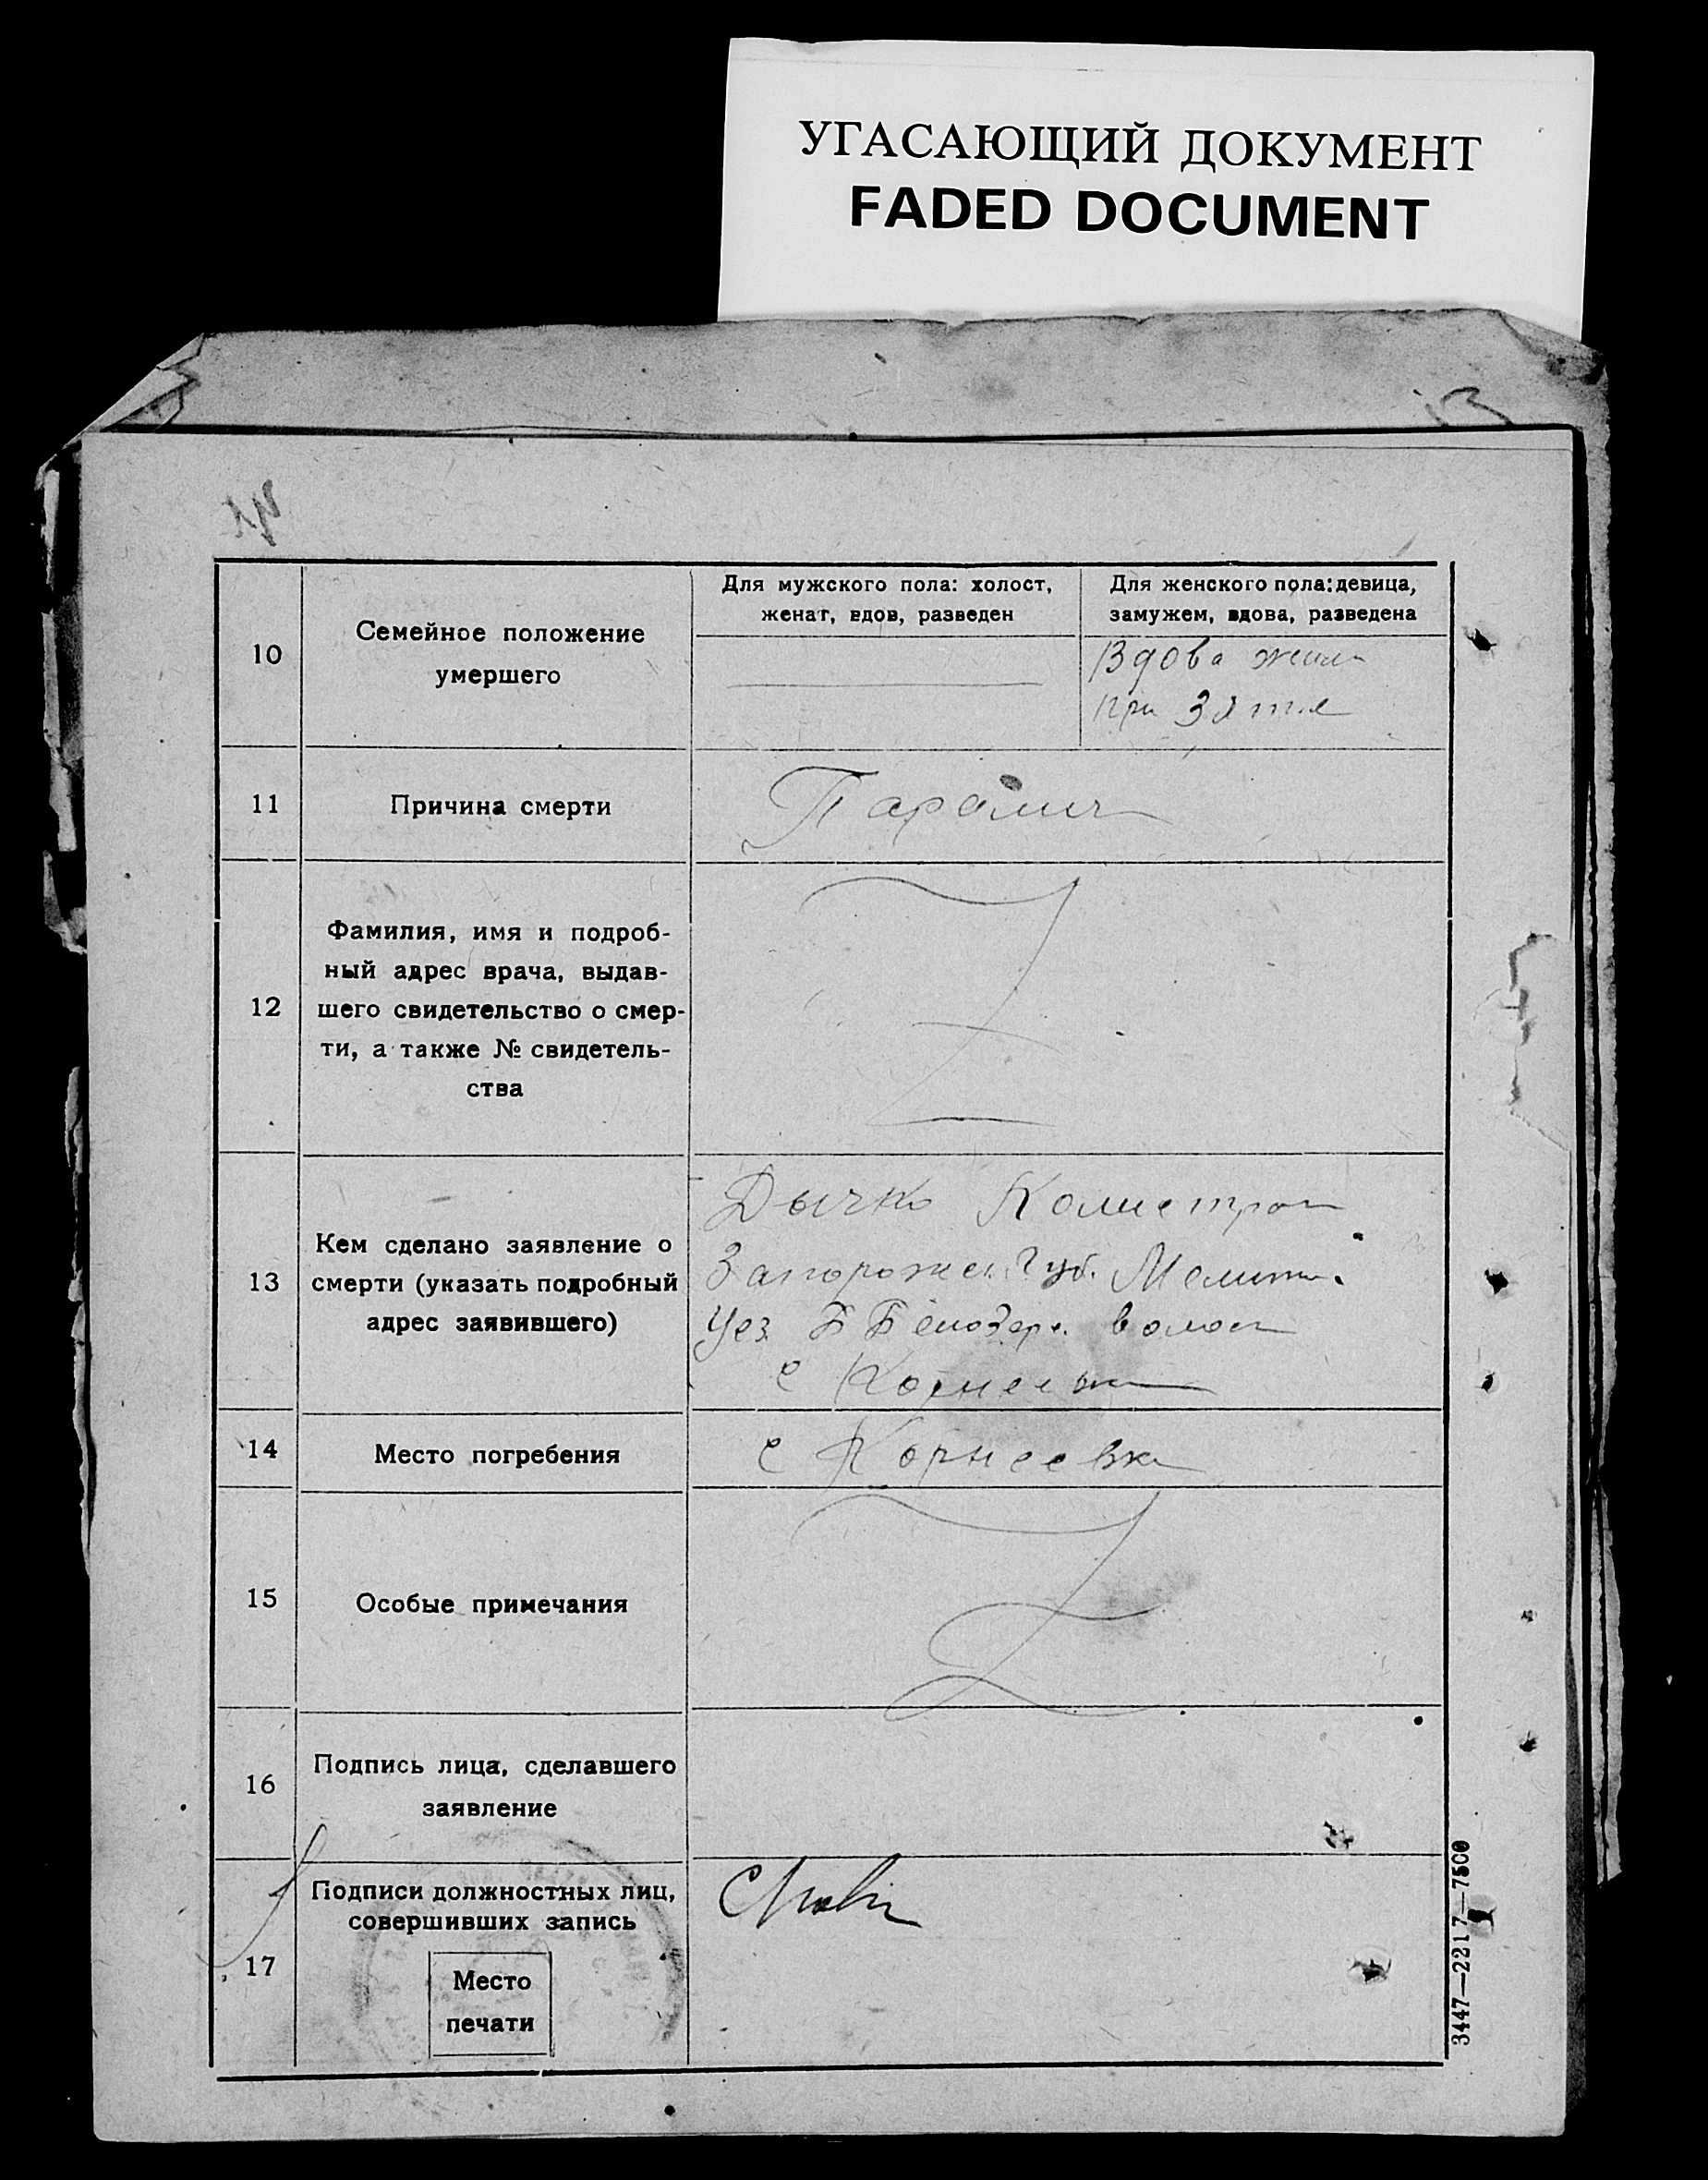 УГАСАЮЩИЙ ДОКУМЕНТ
FADED DOCUMENT
10
Семейное положение
умершего
Для мужского пола: холост,
женат, вдов, разведен
Для женского пола: девица,
замужем, вдова, разведена
Вдова
при Зяте
11
Причина смерти
Паралич
12
Фамилия, имя и подроб-
ный адрес врача, выдав-
шего свидетельство о смер-
ти, а также № свидетель-
ства
13
Кем сделано заявление о
смерти (указать подробный
адрес заявившего)
Дычко Калистрат
Запорожск. Губ. Мелит.
Уез. Б Белозерс. волост
с Корнеевка
14
Место погребения
с Корнеевка
15
Особые примечания
16
Подпись лица, сделавшего
заявление
17
Подписи должностных лиц,
совершивших запись
Место
печати
3447—2217—7500